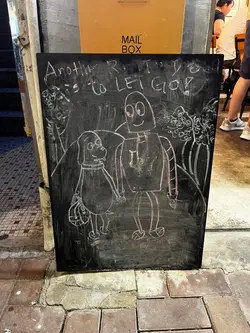 MAIL
BOX
Another
is to LET GO!